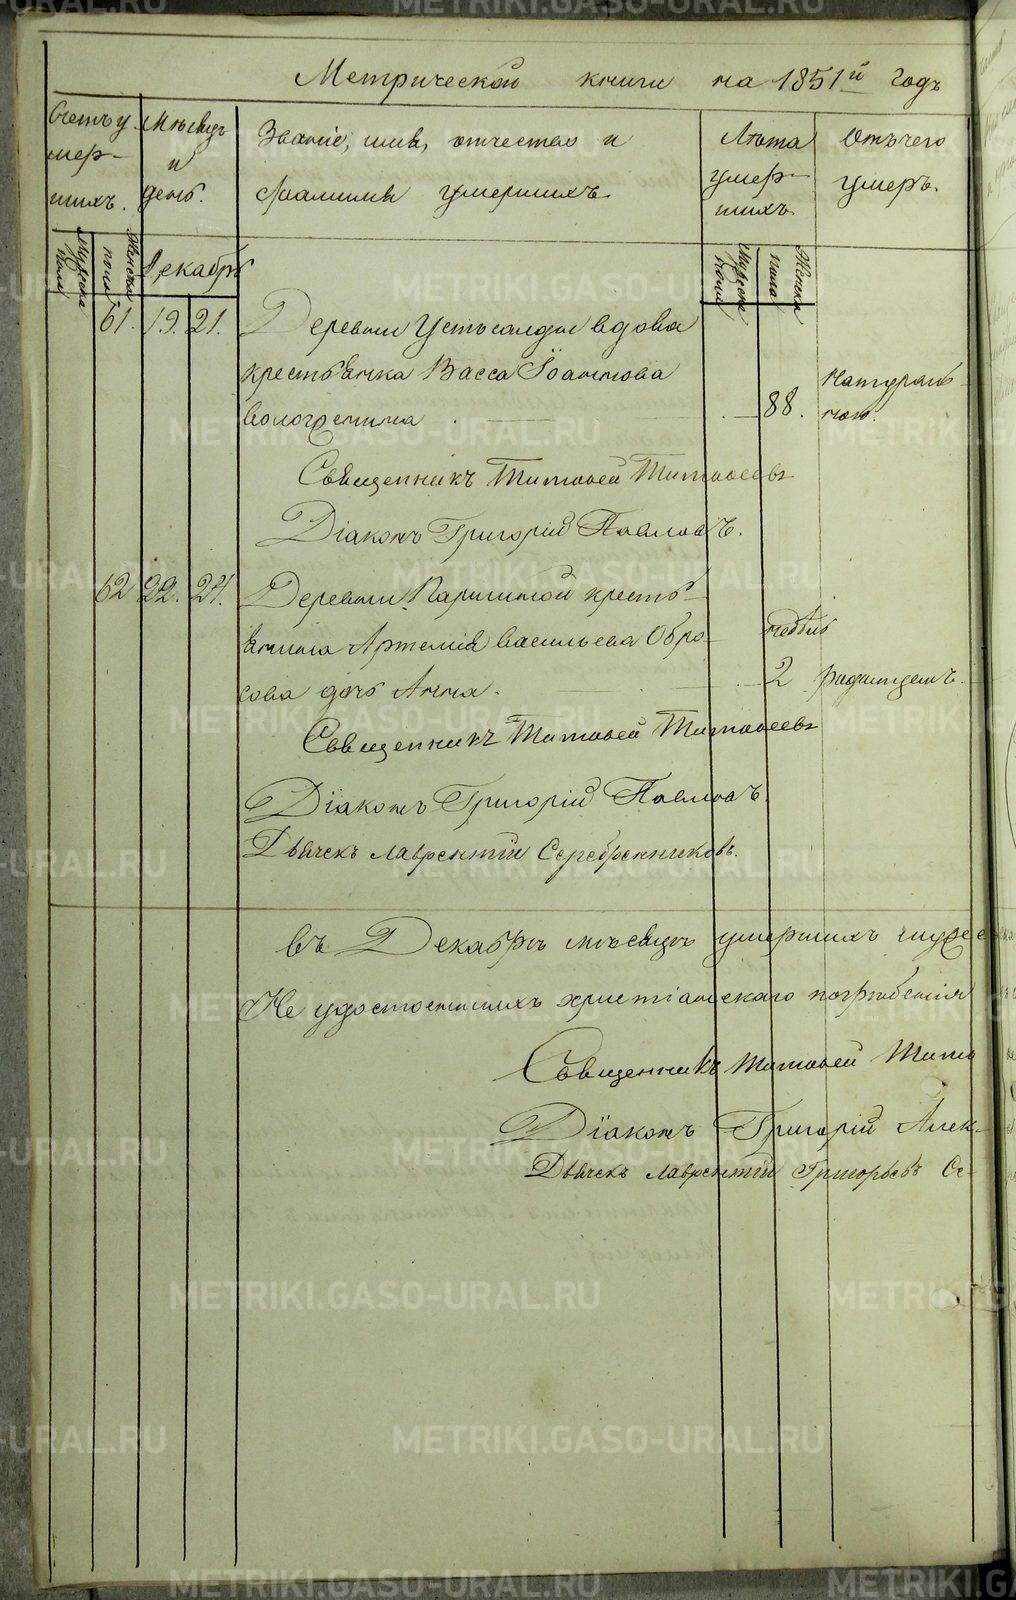 Метрической книги на 1851й годъ
Счетъ у
мер-
шихъ.
Мѣсяцъ
и
день.
Званіе, имя, отчество и
фамилія умершихъ
Лѣта
умер-
шихъ
Отъ чего
умеръ.
Мужеска
пола
Женска
пола
Декабрь
Мужеска
пола
Женска
пола
61. 19. 21. Деревни Устьсалды вдова
крестьянка Васса Іоаннова
88. натураль-
ною.
Священникъ Тимофей Тимофеевъ
Діаконъ Григорій Павловъ.
62 22. 24. Деревни кресть-
янина Артемія Васильева Обро-
недѣль
сова дочь Анна. 2 родимцемъ.
Священникъ Тимофей Тимофеевъ
Діаконъ Григорій Павловъ.
Дьячекъ Лаврентій Серебренниковъ.
въ Декабрѣ мѣсяцѣ умершихъ мужес
Не удостоенныхъ христіанскаго погребенія
Священникъ Тимофей Тимо
Діаконъ Григорій Алек-
Дьячекъ Лаврентій Григорьевъ Се-
METRIKI.GASO-URAL.RU